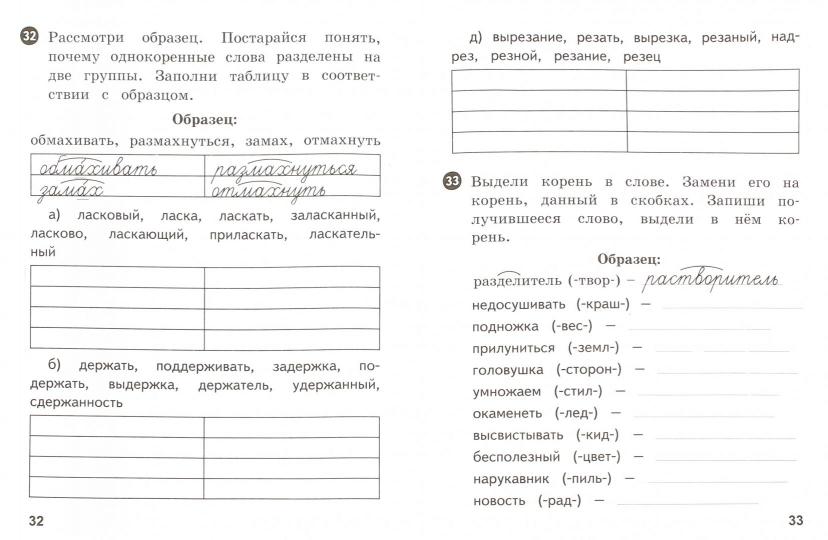 32 Рассмотри образец. Постарайся понять,
почему однокоренные слова разделены на
две группы. Заполни таблицу в соответ-
ствии с образцом.
Образец:
обмахивать, размахнуться, замах, отмахнуть
обмахивать размахнуться
замах отмахнуть
а) ласковый, ласка, ласкать, заласканный,
ласково, ласкающий, приласкать, ласкатель-
ный
б) держать, поддерживать, задержка, по-
держать, выдержка, держатель, удержанный,
сдержанность
32
д) вырезание, резать, вырезка, резаный, над-
рез, резной, резание, резец
33 Выдели корень в слове. Замени его на
корень, данный в скобках. Запиши по-
лучившееся слово, выдели в нём ко-
рень.
Образец:
разделитель (-твор-) – растворитель
недосушивать (-краш-) –
подножка (-вес-) –
прилуниться (-земл-) –
головушка (-сторон-) –
умножаем (-стил-) –
окаменеть (-лед-) –
высвистывать (-кид-) –
бесполезный (-цвет-) –
нарукавник (-пиль-) –
новость (-рад-) –
33